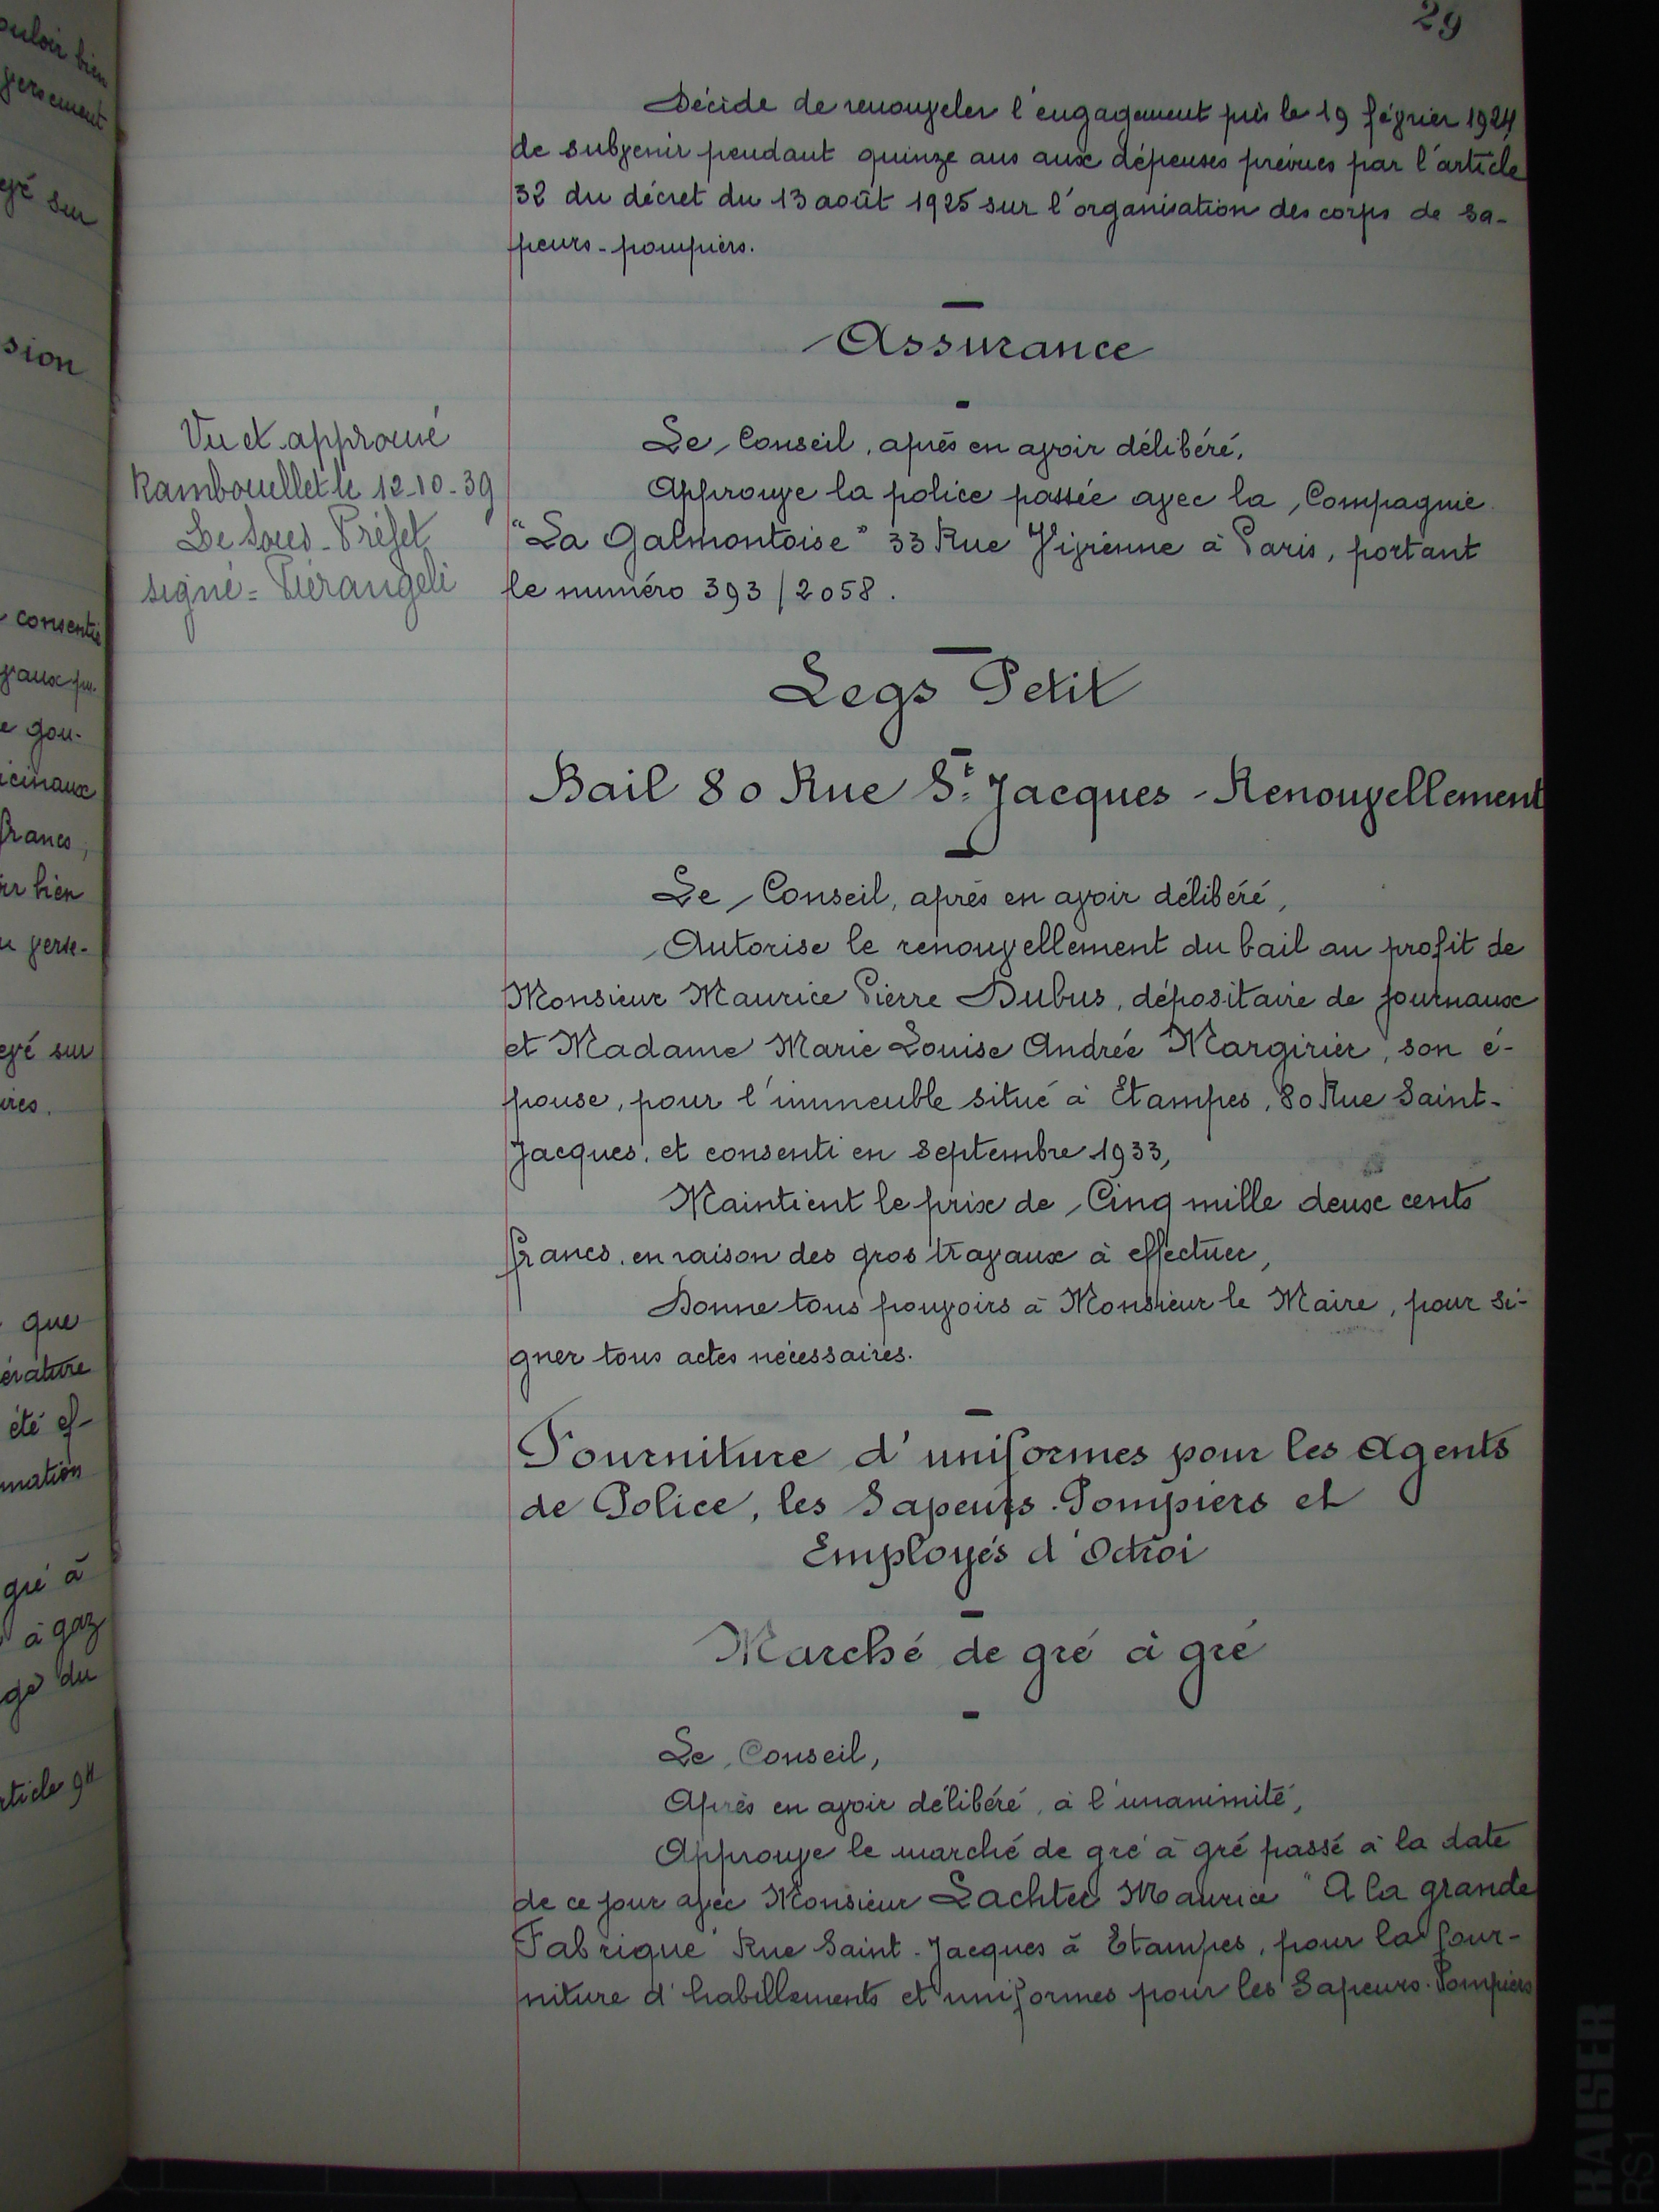 29
ouloir bien
versement
evé sur
sion
consentie
vaux pu-
e gou-
icinaux
francs,
ir bien
u verse-
evé sur
ires.
que
érature
été ef-
mation
gré à
à gaz
ge du
rticle 9
Décide de renouveler l'engagement pris le 19 février 1924
de subvenir pendant quinze ans aux dépenses prévues par l'article
32 du décret du 13 août 1925 sur l'organisation des corps de sa-
peurs-pompiers.
Assurance
Vu et approuvé
Rambouillet le 12-10-39
Le Sous-Préfet
signé = Piérangeli
Le Conseil, après en avoir délibéré,
Approuve la police passée avec la Compagnie
"La Galmontoise" 33 Rue Vivienne à Paris, portant
le numéro 393/2058.
Legs Petit
Bail 80 Rue St Jacques - Renouvellement
Le Conseil, après en avoir délibéré,
Autorise le renouvellement du bail au profit de
Monsieur Maurice Pierre Dubus, dépositaire de journaux
et Madame Marie Louise Andrée Margirier, son é-
pouse, pour l'immeuble situé à Etampes, 80 Rue Saint-
Jacques, et consenti en Septembre 1933,
Maintient le prix de Cinq mille deux cents
francs, en raison des gros travaux à effectuer,
Donne tous pouvoirs à Monsieur le Maire, pour si-
gner tous actes nécessaires.
Fourniture d'uniformes pour les Agents
de Police, les Sapeurs-Pompiers et
Employés d'Octroi
Marché de gré à gré
Le Conseil,
Après en avoir délibéré, à l'unanimité,
Approuve le marché de gré à gré passé à la date
de ce jour avec Monsieur Lachter Maurice "A la grande
Fabrique" Rue Saint-Jacques à Etampes, pour la four-
niture d'habillements et uniformes pour les Sapeurs-Pompiers
KAISER
RS1